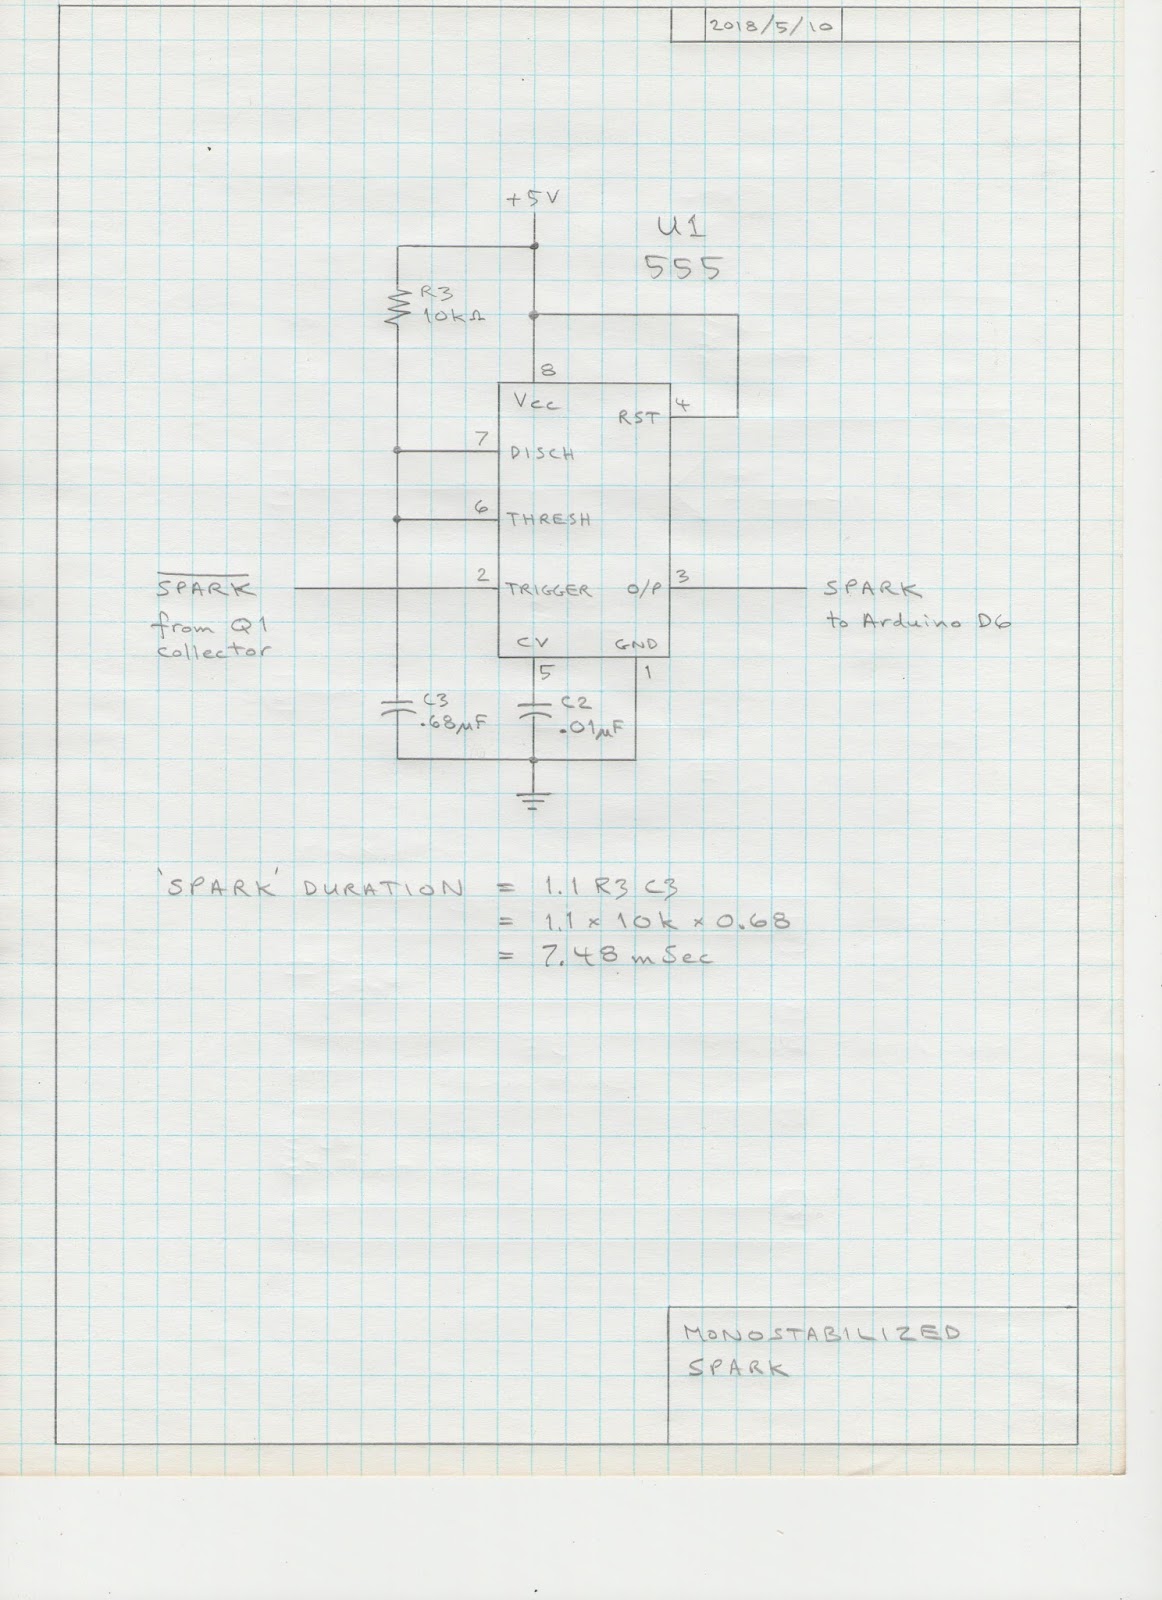 2018/5/10
+5V
U1
555
R3
10kΩ
8
Vcc
4
RST
7
DISCH
6
THRESH
SPARK
2
TRIGGER
O/P
3
SPARK
from Q1
collector
to Arduino D6
CV
GND
5
1
C3
.68µF
C2
.01µF
'SPARK' DURATION = 1.1 R3 C3
= 1.1 × 10k × 0.68
= 7.48 mSec
MONOSTABILIZED
SPARK